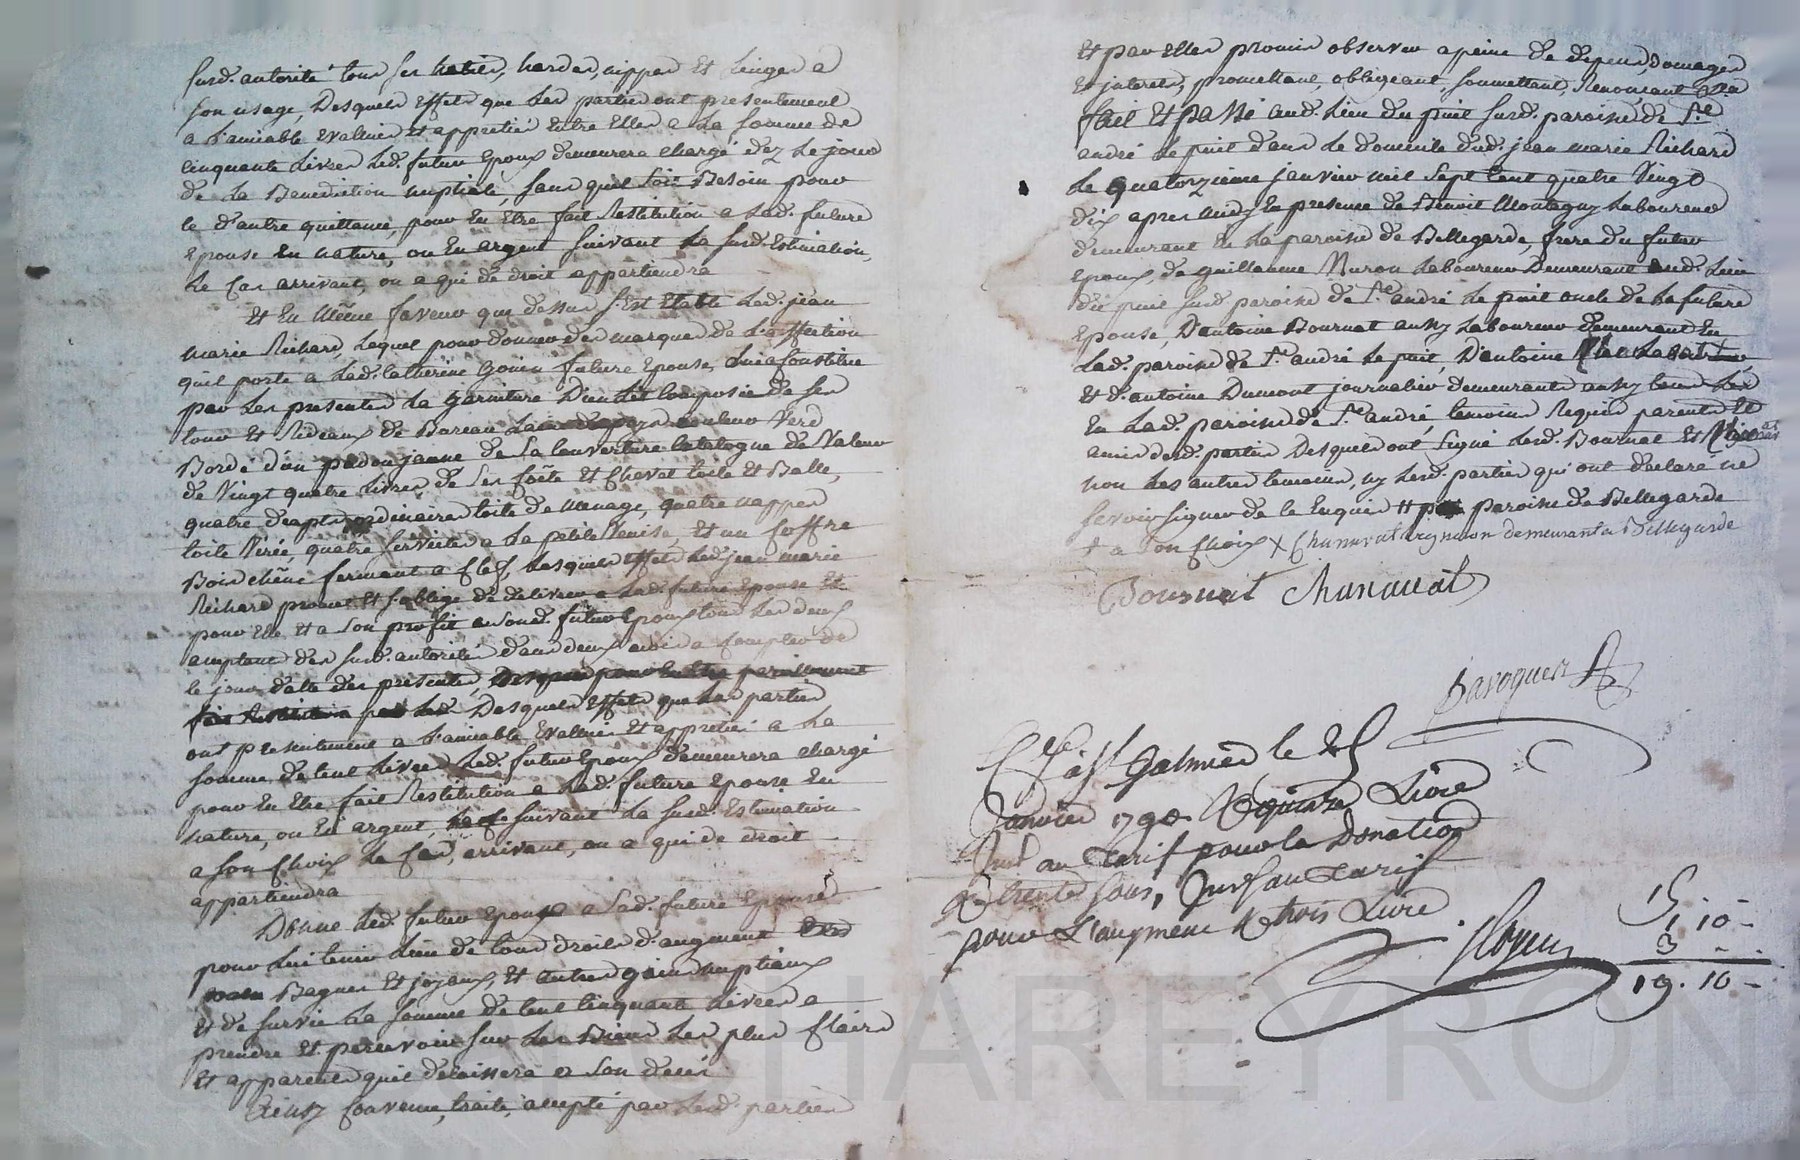 susd. autorité tous ses habits, hardes, nippes et linges a
son usage, Desquels Effets que les parties ont presentement
a L'amiable Evallués et appretiés Entre Elles a la somme de
cinquante Livres led. futur Epoux demeurera chargé dez le jour
de la Benediction nuptiale, sans quil soit Besoin pour
ce d'autre quittance, pour En Etre fait Restitution a lad. future
Epouse En nature, ou En argent suivant la susd. Estimation,
le Cas arrivant, ou a qui de droit appartiendra
Et En Même faveur que dessus s'Est Etabli led. jean
marie Richard, Lequel pour donner des marques de L'affection
quil porte a lad. Catherine future Epouse, lui a Constitué
par les presentes la garniture D'un Lit Composée de ses
tour et Rideaux de couleur Verd
Bordé d'un padou jaune de la Couverture Catalogne de Valeur
de Vingt quatre Livres, de ses Coëte et Chevet toile et Balle,
quatre draps ordinaires toile de menage, quatre nappes
toile quatre serviettes a la petite Venise, et un Coffre
Bois chêne fermant a Clef, Lesquels Effets led. jean marie
Richard promet et s'oblige de délivrer a lad. future Epouse Et
pour Elle et a son profit ausond. futur Epoux tous les deux
acceptant des susd. autorités dans deux a compter de
ce jour date des presentes,
Desquels Effets que les parties
ont presentement a L'amiable Evallués Et appretiés a la
somme de Cent Livres led. futur Epoux demeurera chargé
pour En Etre fait Restitution a lad. future Epouse En
nature, ou En argent, suivant la susd. Estimation
a son Choix le Cas, arrivant, ou a qui de droit
appartiendra
Donne led. futur Epoux a lad. future Epouse
pour lui tenir Lieu de tous droits d'augment
Bagues Et joyaux, Et autres gains nuptiaux
Et de survie la somme de Cent Cinquante Livres a
prendre Et percevoir sur les Biens les plus Clairs
Et apparents quil delaissera a son decés
Ainsy Convenu, traité, accepté par lesd. parties
Et par Elles promis observer a peine de depens, Domages
Et interets, promettant, obligeant, soumettant, Renonçant
fait Et passé aud. Lieu du puit susd. paroisse de St.
andré le puit dans le domicile dud. jean marie Richard
Le quatorzieme janvier mil sept Cent quatre Vingt
dix apres midy En presence de Benoit Montagny Laboureur
demeurant En la paroisse de Bellegarde, frere du futur
Epoux, de guillaume Muron Laboureur Demeurant aud. Lieu
du puit susd. paroisse de St. andré le puit oncle de la future
Epouse, D'antoine Bournat aussy Laboureur demeurant En
lad. paroisse de St. andré le puit, D'antoine
Et d'antoine Dumont journalier demeurants aussy tous Les
En lad. paroisse de St. andré, temoins Requis parents et
amis desd. parties Desquels ont signé led. Bournat Et
non Les autres temoins, ny lesd. parties qui ont declaré ne
sçavoir signer de ce Enquis # paroisse de Bellegarde
+ a son Choix x Chanavat vigneron demeurant a Bellegarde
Bournat Chanavat
Paroquer
Cllé a St Galmier le 28
Janvier 1790 R quinze Livre
Suiv. au Tarif pour la Donation
R trente sous, Suiv. au Tarif
pour L'augment R trois Livre
15
1. 10 -
3 - .
19. 10 -
CHAREYRON